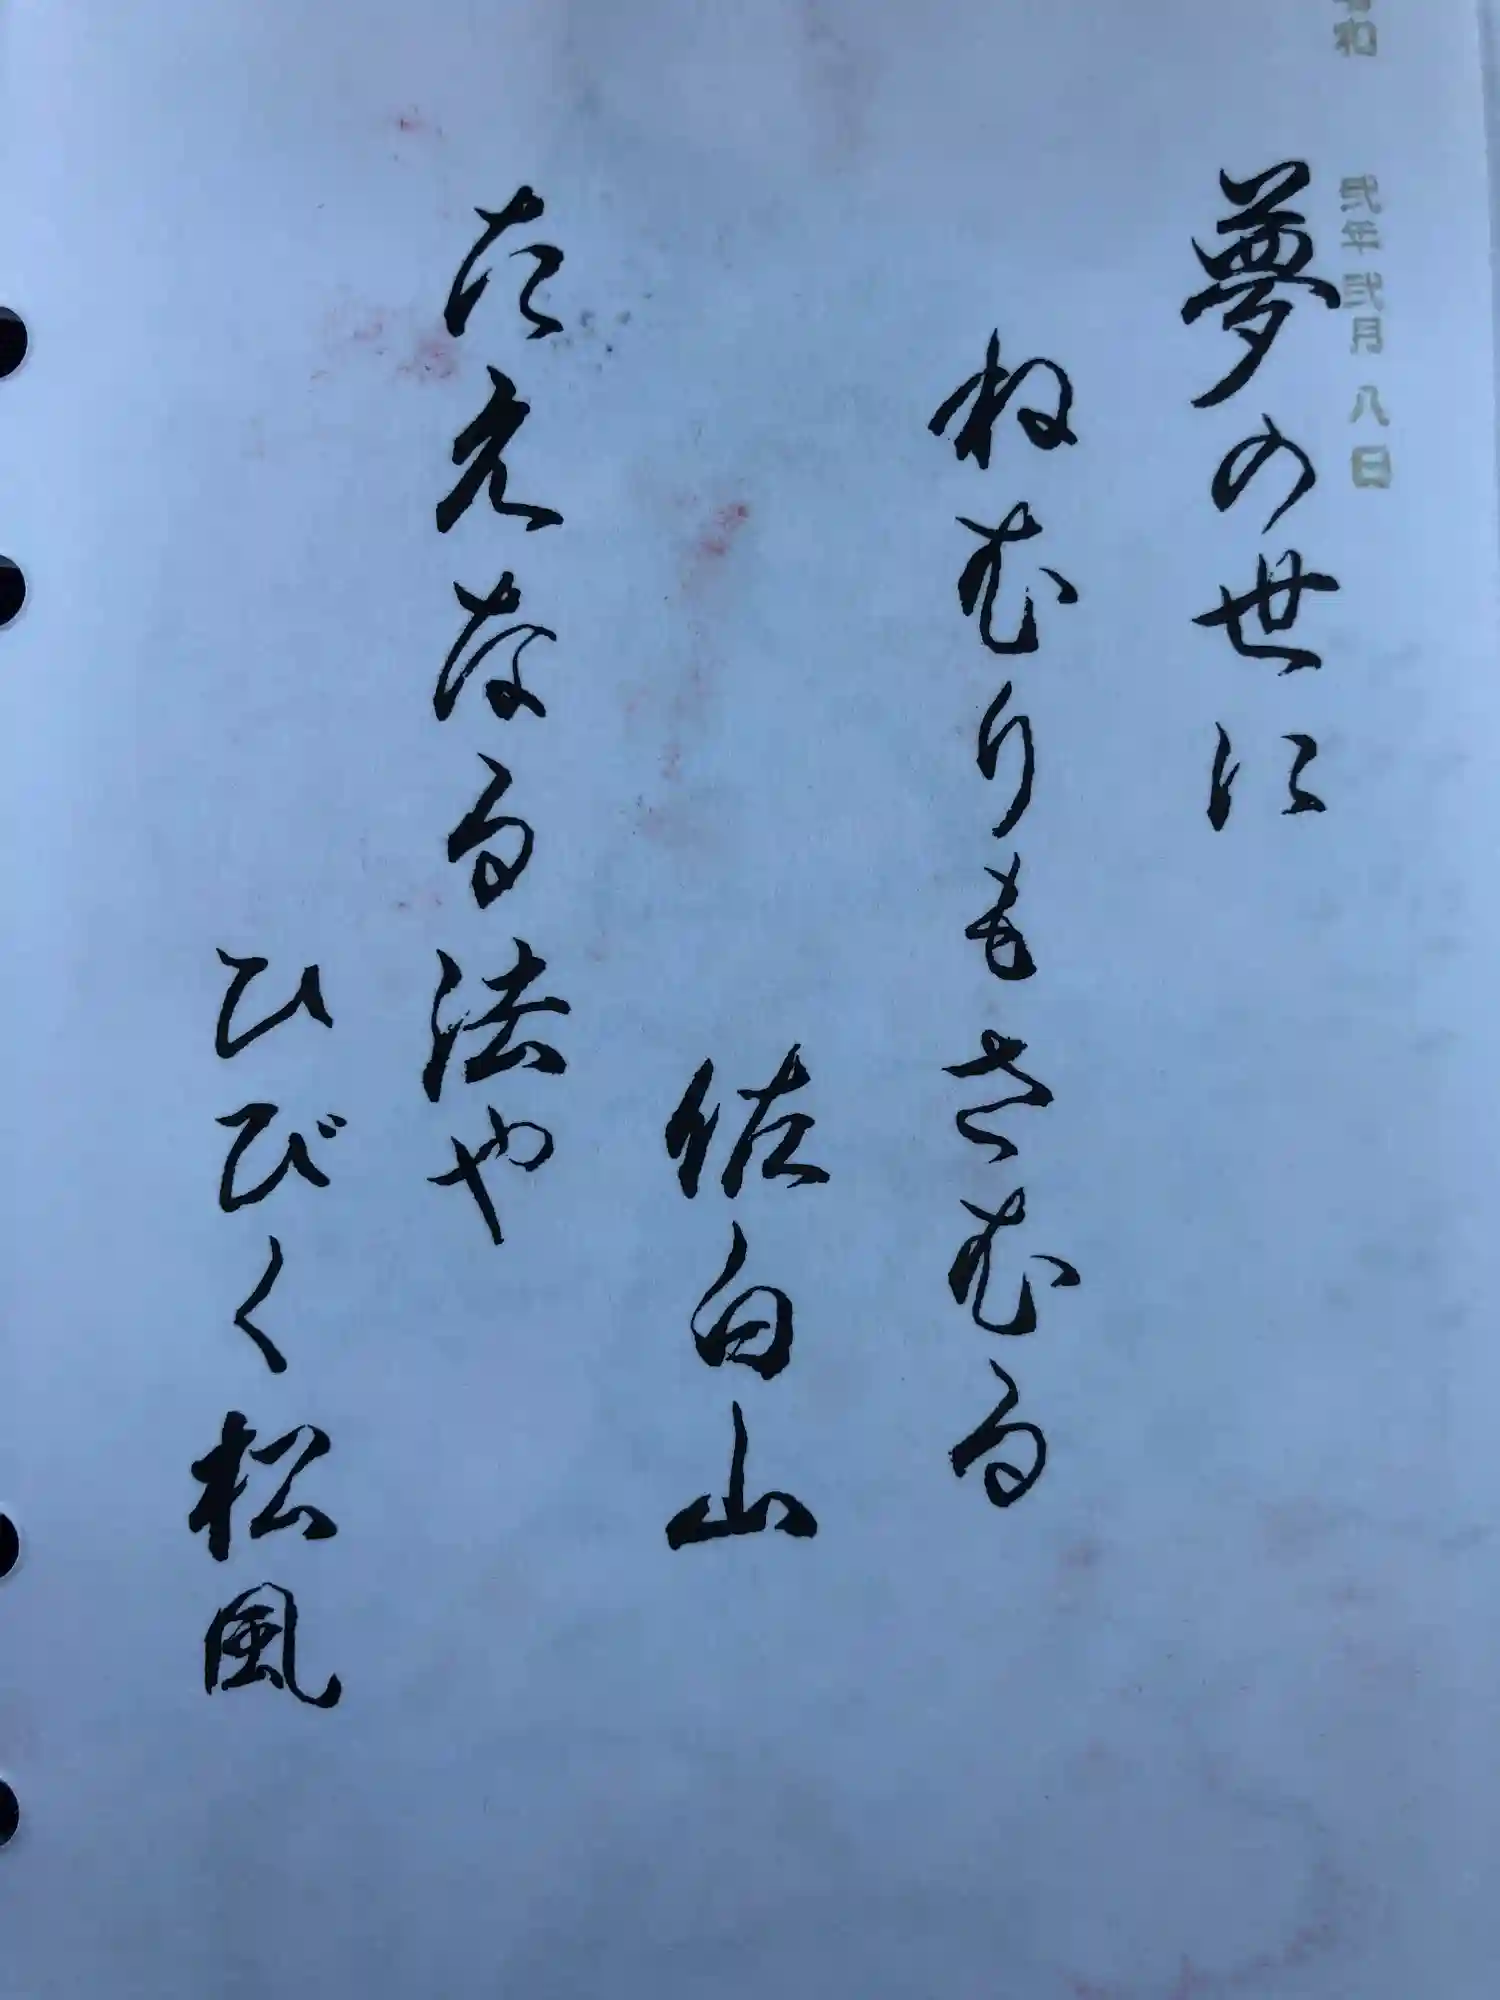 夢の世に
ねむりもさむる
佐白山
たえなる法や
ひびく松風
和
弐年弐月八日